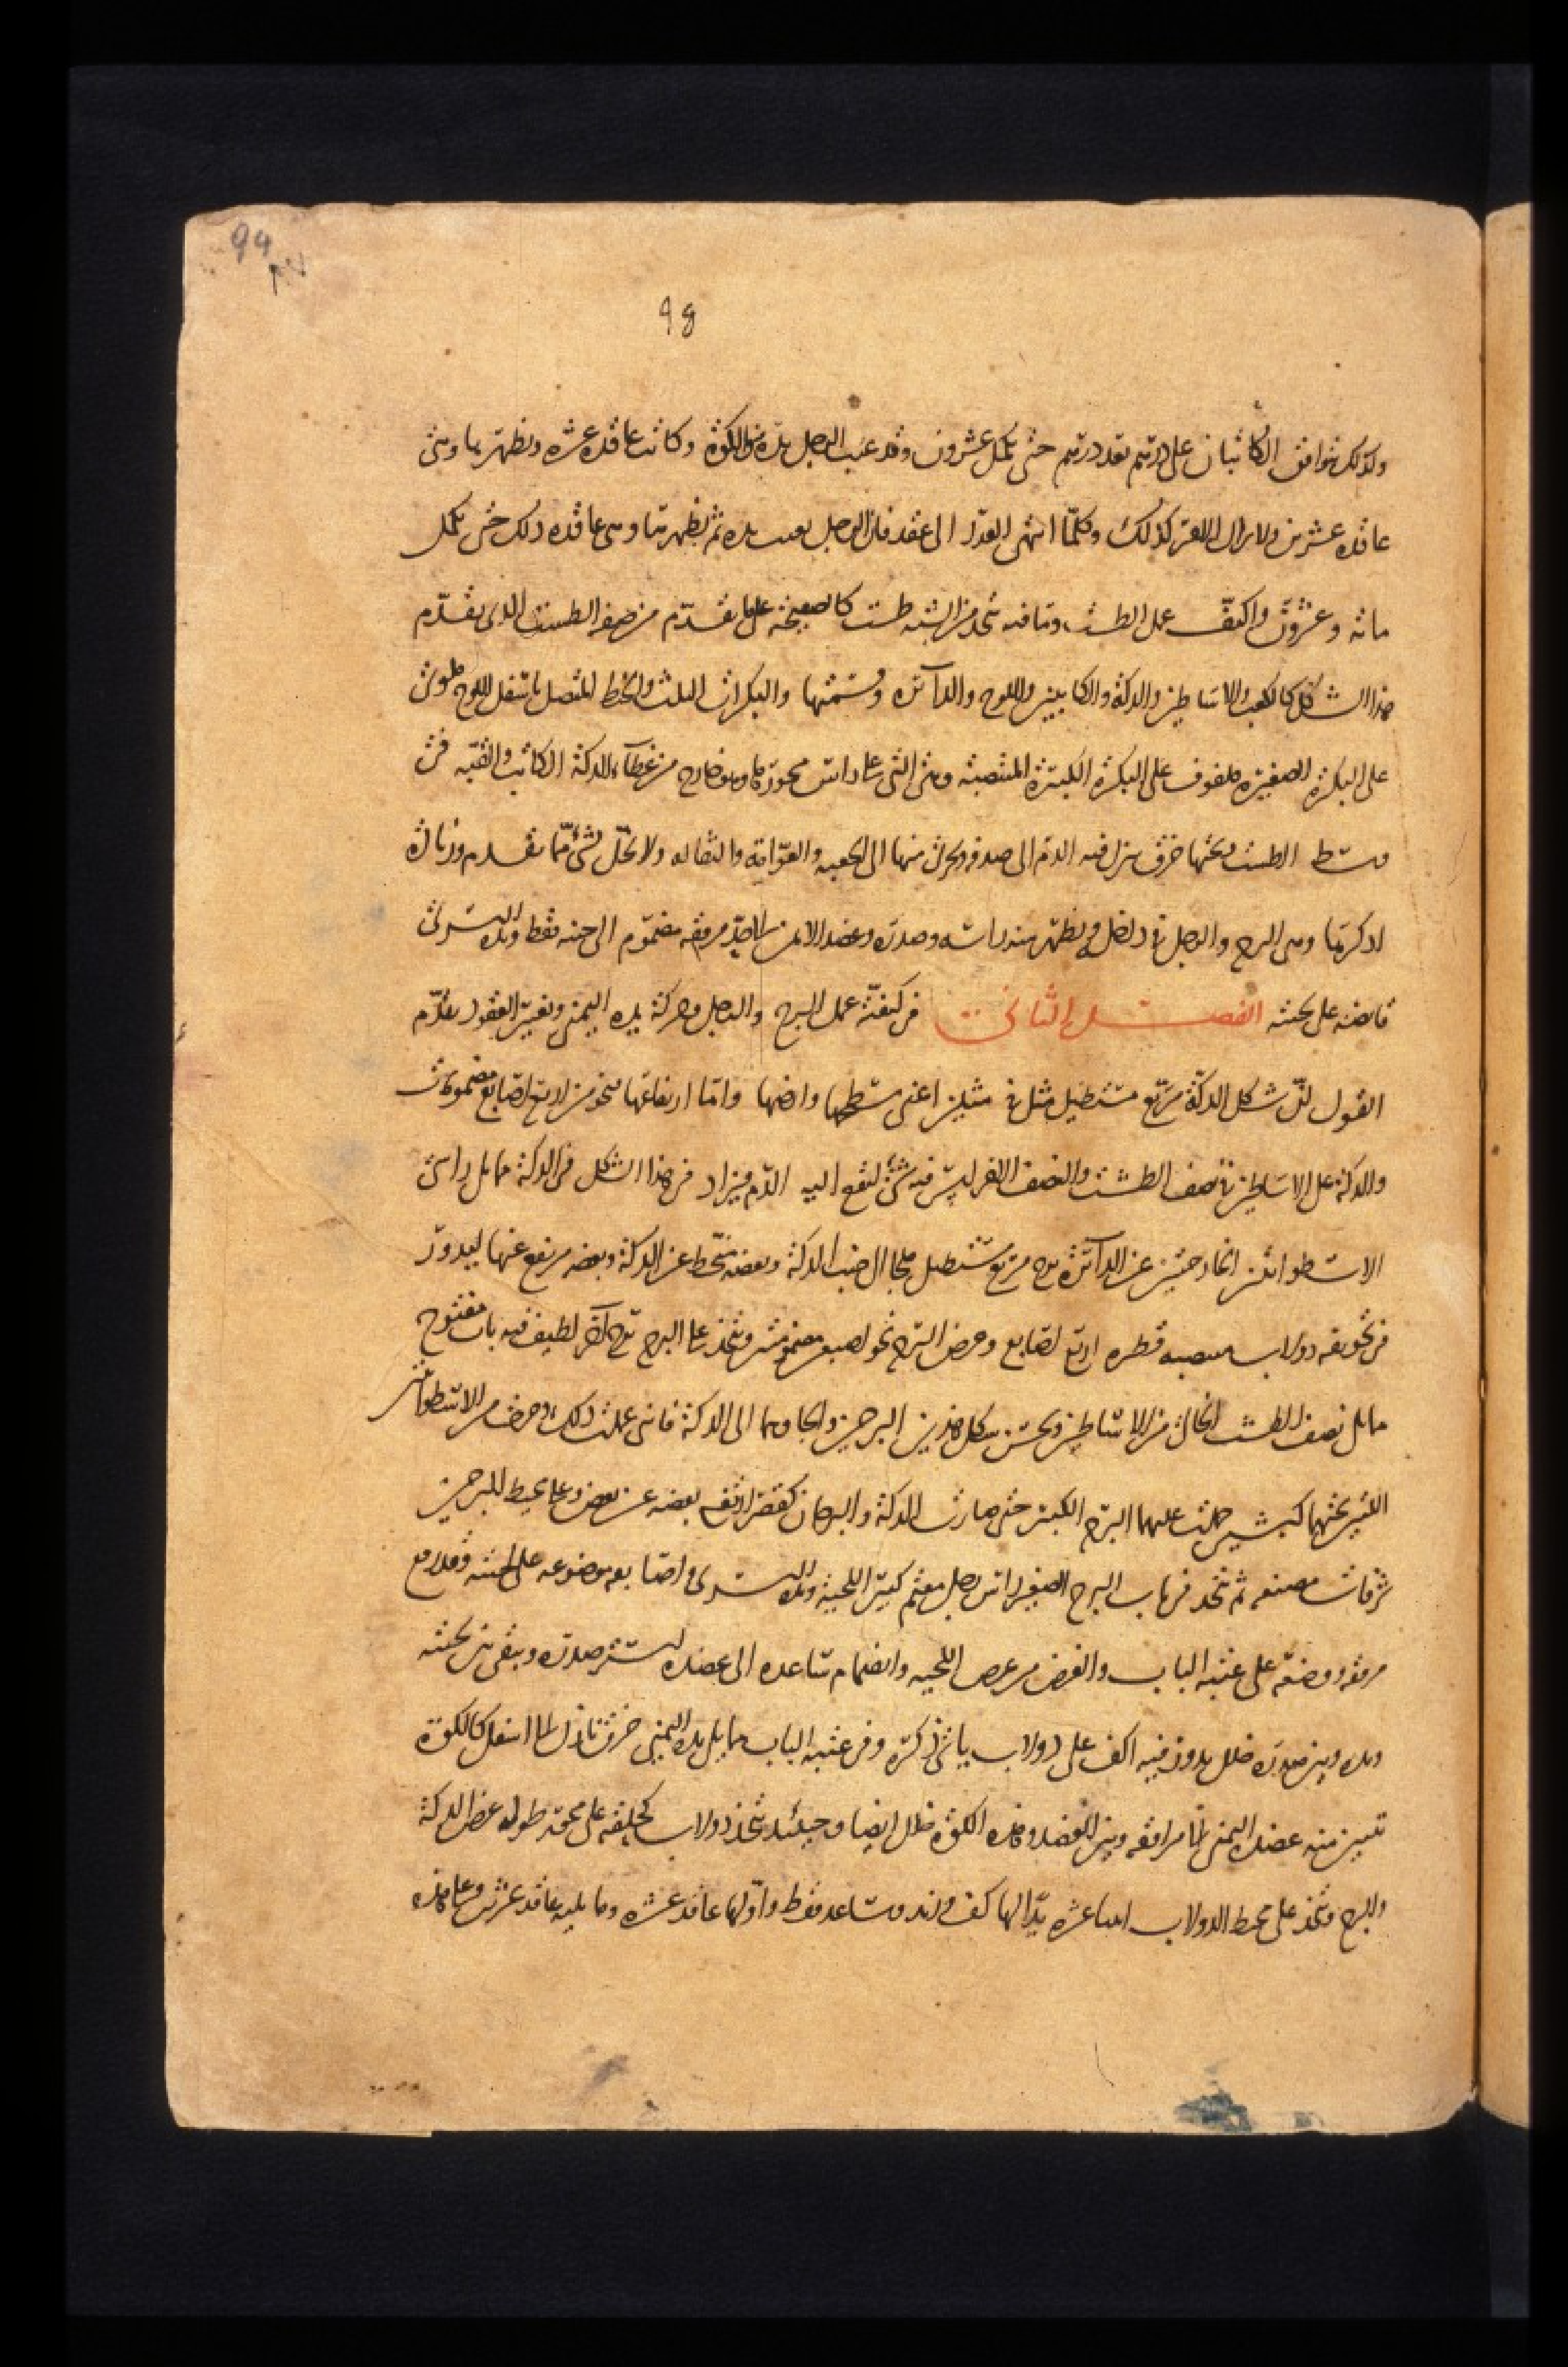 99
98
وكذلك يتوافق الكاتبان على درهم بعد درهم حتى يكمل عشرون وقد غيب الرجل يده في الكوة وكانت عاقده عشره ويظهرها وهي
عاقده عشرين ولا يزال الامر كذلك وكلما انتهى العدد الى عقد فان الرجل يغيب يده ثم يظهرها وهي عاقده ذلك حتى يكمل
مائه وعشرون واكيف عمل الطست وما فيه يتخذ من الشبه طست كالصحيحه على ما تقدم من صفه الطست الذي تقدم
هذا الشكل كالكعب والاساطين والدكة والكاتبين واللوح والدائره وقسمتها والبكرات الثلث والخيط المتصل باسفل اللوح ملوي
على البكرة الصغيره ملفوف على البكرة الكبيرة المنتصبة وهي التي على راس محورها وهو خارج من غطاء الدكة الكاتب والقبه في
وسط الطست وتحتها خرق ينزل فيه الدم الى صدفه ويجري منها الى الكعب والعوامه والثقاله ولا يخل بشئ مما تقدم وزيادة
اذكرها وهي البرج والرجل في داخله ويظهر منه راسه وصدره وعضده الايمن الى حد مرفقه مضموم الى جنبه فقط ويده اليسرى
قابضه على لحيته الفصل الثاني في كيفية عمل البرج والرجل وحركة يده اليمنى وتغيير العقود تقدم
القول بان شكل الدكة مربع مستطيل مثل في مثلين اعني سطحها وارضها واما ارتفاعها فنحو من اربع اصابع مضمومات
والدكة على الاساطين في نصف الطست والنصف الاخر ليس فيه شئ ليقع اليه الدم ويزاد في هذا الشكل في الدكة مما يلي راس
الاسطوانتين الخارجتين عن الدائرة برج مربع مستطيل الى جانب الدكة وبعضه منحط عن الدكة وبعضه مرتفع عنها ليدور
في تجويفه دولاب منتصب قطره اربع اصابع وعرض البرج نحو اصبعين مضمومتين ويتخذ على البرج برج اخر لطيف فيه باب مفتوح
مما يلي نصف الطست الخالي من الاساطين ويحسن شكل هذين البرجين والحاقهما الى الدكة فاني عملت ذلك عوض من الاسطوانتين
اللتين تحتهما كبشين حملت عليهما البرج الكبير حتى صارت الدكة والبرجان كقصر ارتفع بعضه عن بعض وعلى محيط البرجين
شرفات مصنعه ثم يتخذ في باب البرج الصغير راس رجل معمم كبير اللحية ويده اليسرى واصابعه موضوعه على لحيته وقد رفع
مرفقه ووضعه على عتبه الباب والغرض من عرض اللحيه وانضمام ساعده الى عضده ليستر صدره ويبقى بين لحيته
ويده وبين صدره خلل يدور فيه اكف على دولاب ياتي ذكره وفي عتبه الباب مما يلي يده اليمنى خرق نازل الى اسفل كالكوة
تبين منه عضده اليمنى الى مرافقه وبين العضد وهذه الكوة خلل ايضا وحينئذ يتخذ دولاب كحلقه على محور طوله عرض الدكة
والبرج ويتخذ على محيط الدولاب اثنا عشره يدا لها كف وزند وساعد فقط واولها عاقد عشره وما يليه عاقد عشرين وعلى هذه